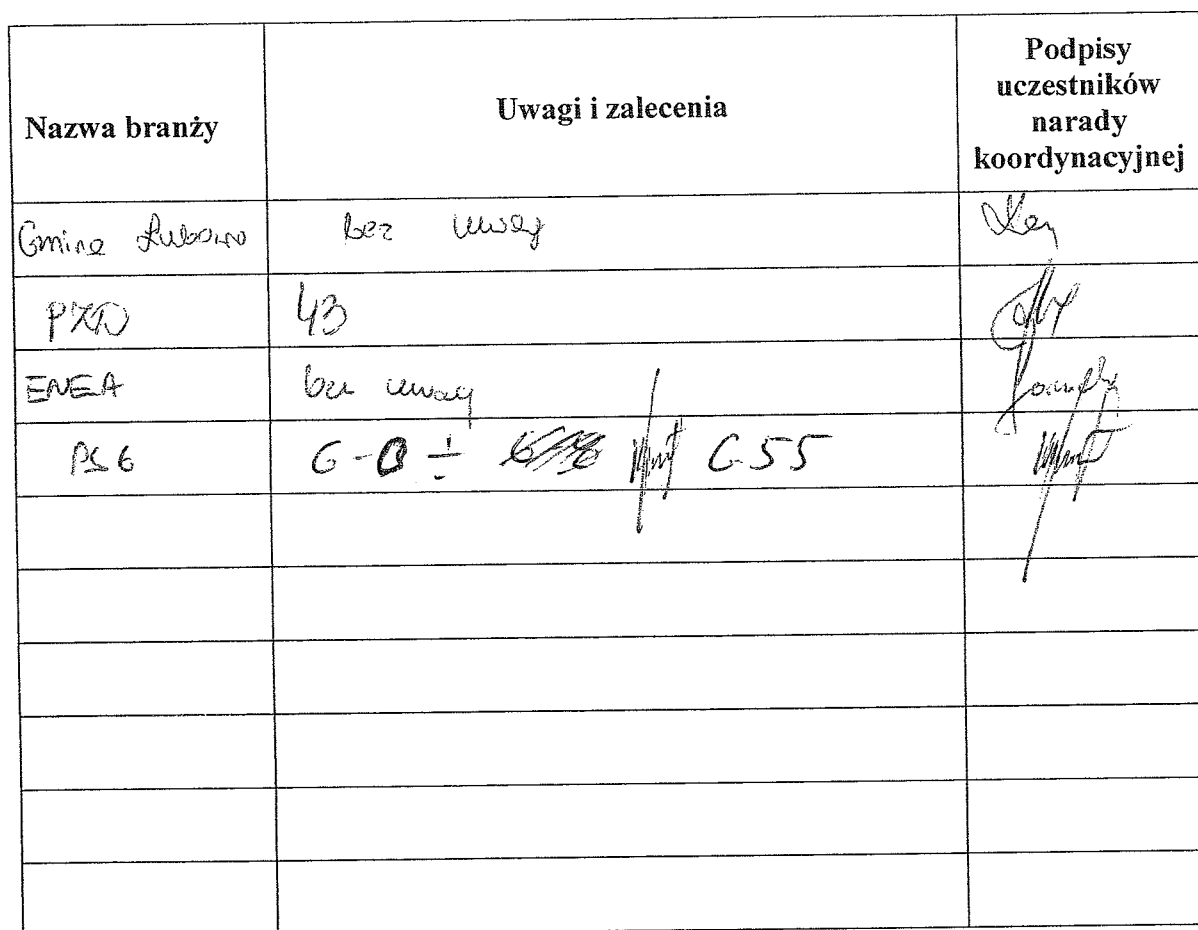 Nazwa branży Uwagi i zalecenia Podpisy uczestników narady koordynacyjnej
Gmina Łubowo bez uwag
PZD 43
ENEA bez uwag
PSG G- G.55